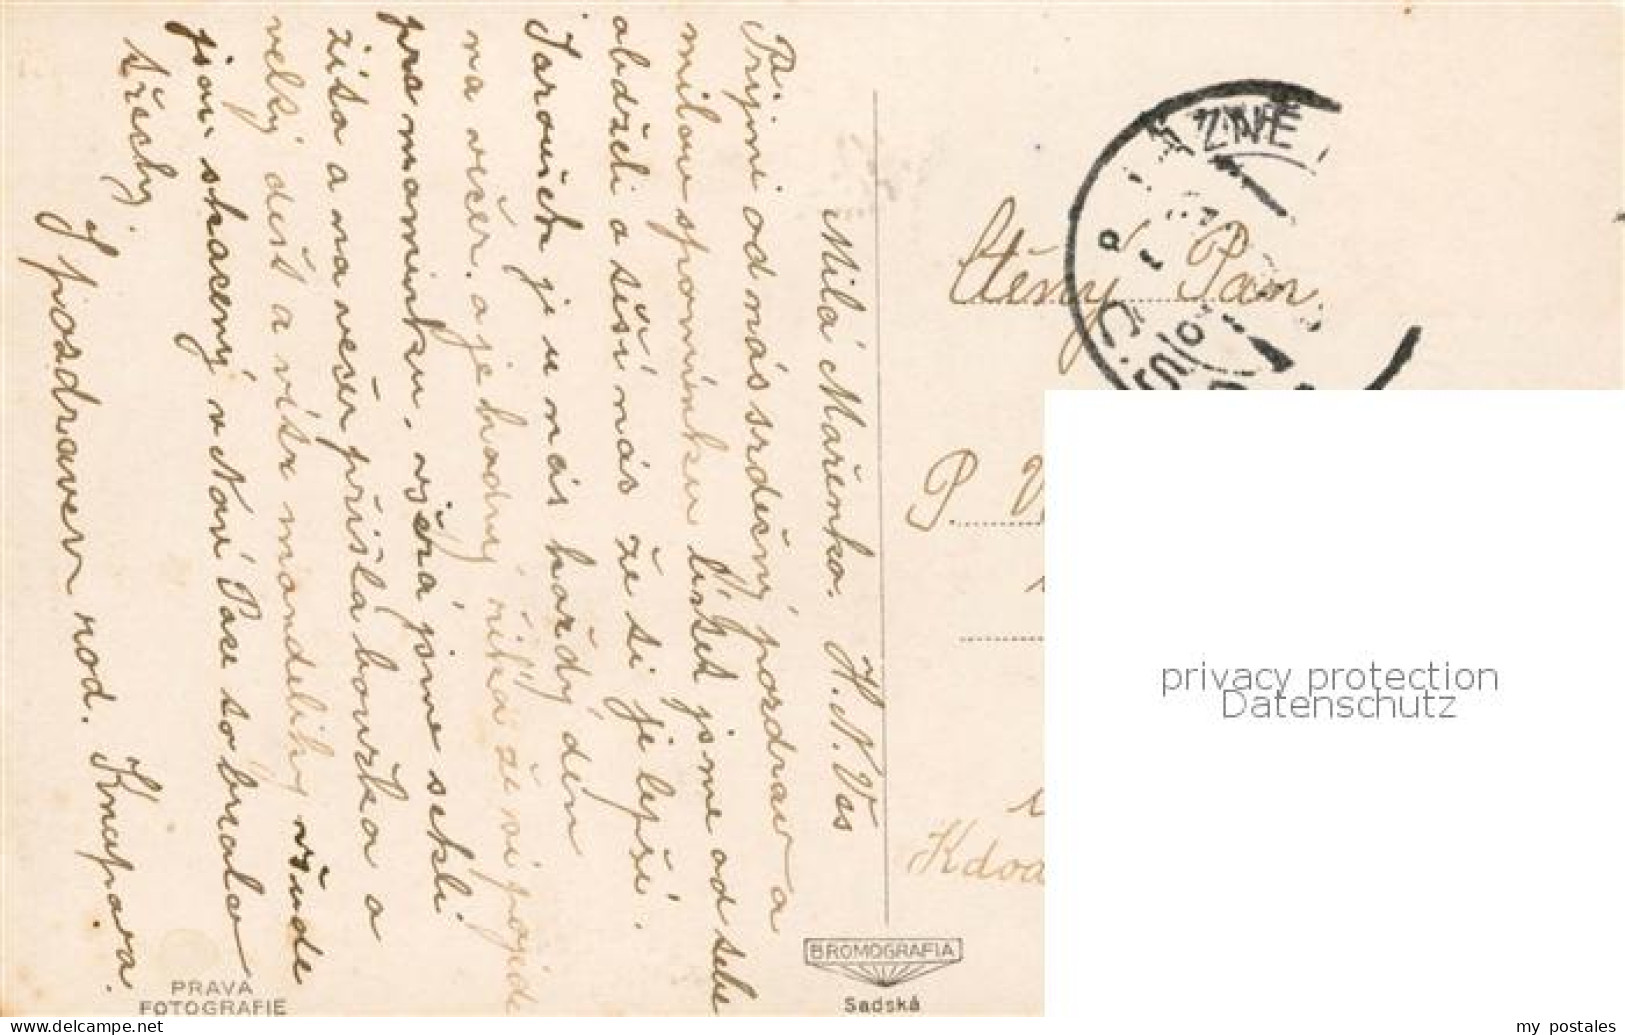 Milá Mařenko. H. N. Ves
Přijmi od nás srdečný pozdrav a
milov spomínku lístek jsme od tebe
obdželi a těší nás že si je lepší.
Jarouch je u nás každý den
na večer. a je hodný říká že si pojede
pro maminku. včera jsme sekli
žita a na večer přišla bouřka a
velký dešť a vítr mandeliky všude
jsou skacený v Noví Pace to bralo
střechy
S pozdravem rod. Knapova.
Ctěný Pan
P V
Kdoa
PRAVA
FOTOGRAFIE
BROMOGRAFIA
Sadská
privacy protection
Datenschutz
www.delcampe.net
my_postales